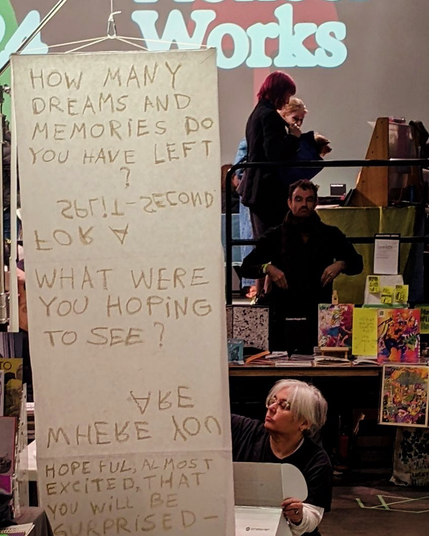 Works
HOW MANY
DREAMS AND
MEMORIES DO
YOU HAVE LEFT
?
FOR A
SPLIT-SECOND
WHAT WERE
YOU HOPING
TO SEE?
WHERE YOU
ARE
HOPEFUL, ALMOST
EXCITED, THAT
YOU WILL BE
SURPRISED—